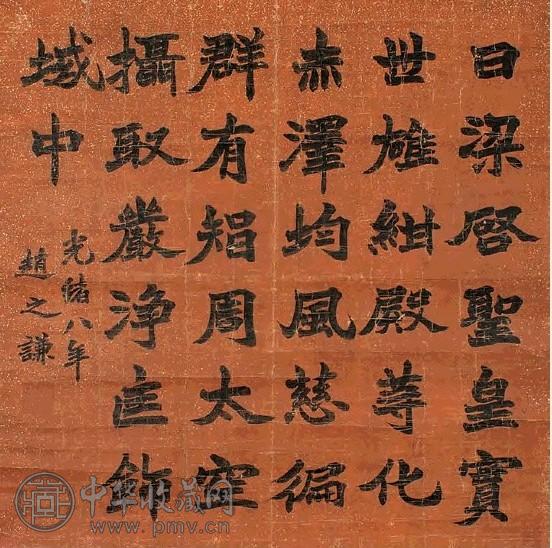 曰梁啓聖皇實
世雄紺殿等化
赤澤均風慈徧
群有智周太空
攝取嚴淨匡飾
域中
光緒八年
趙之謙
中华收藏网
www.pmv.cn